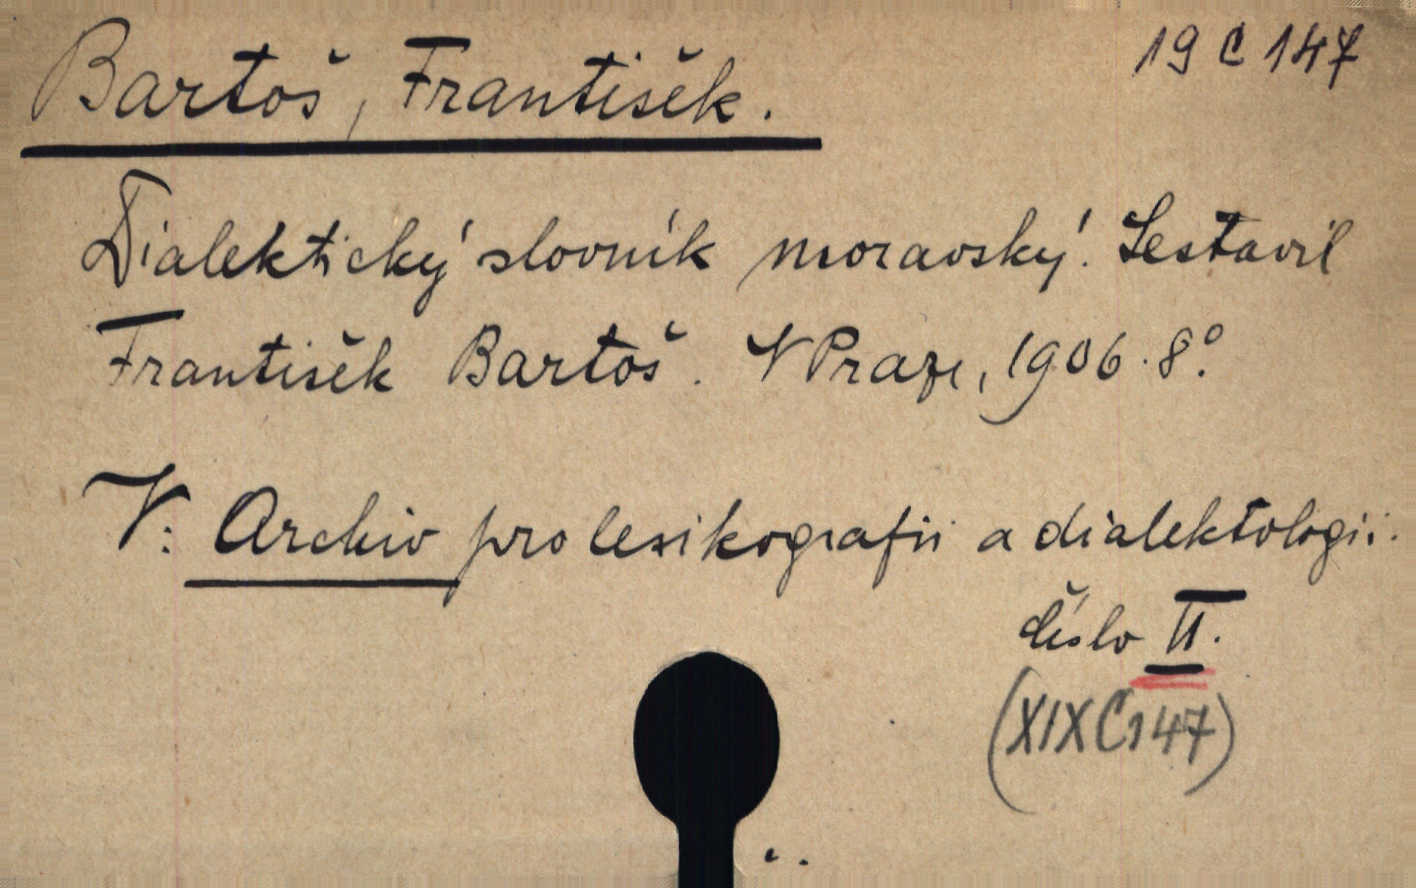 19 C 147
Bartoš, František.
Dialektický slovník moravský. Sestavil
František Bartoš. V Praze, 1906. 8°.
V: Archiv pro lexikografii a dialektologii.
číslo II.
(XIX C 147)